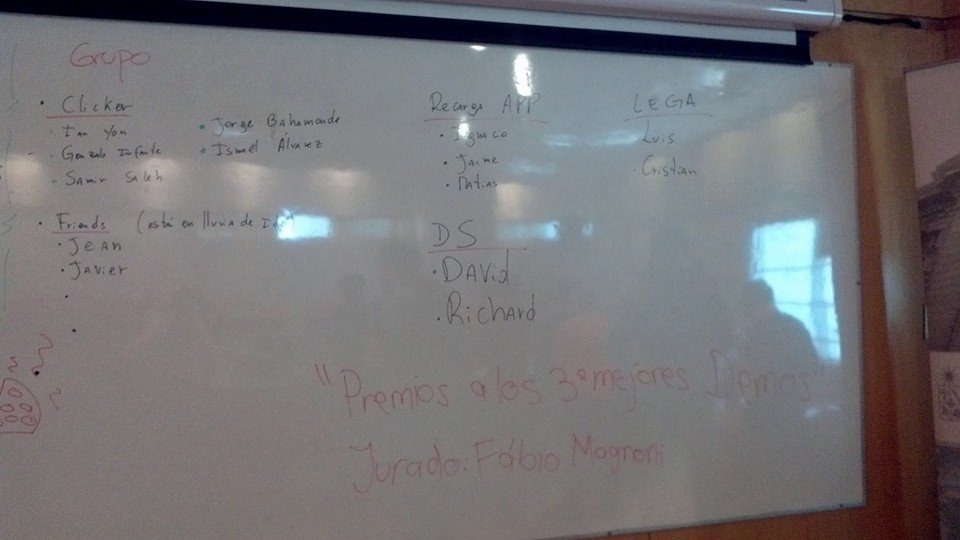 Grupo
Clicker
Ian Yon
Gonzalo Infante
Samir Saleh
Jorge Bahamonde
Ismael Álvarez
Friends (está en lluvia de
Jean
Javier
Recarga APP
Ignaco
Jaime
Matias
LEGA
Luis
Cristian
DS
David
Richard
"Premios a los 3 mejores Demos"
Jurado: Fábio Magnoni